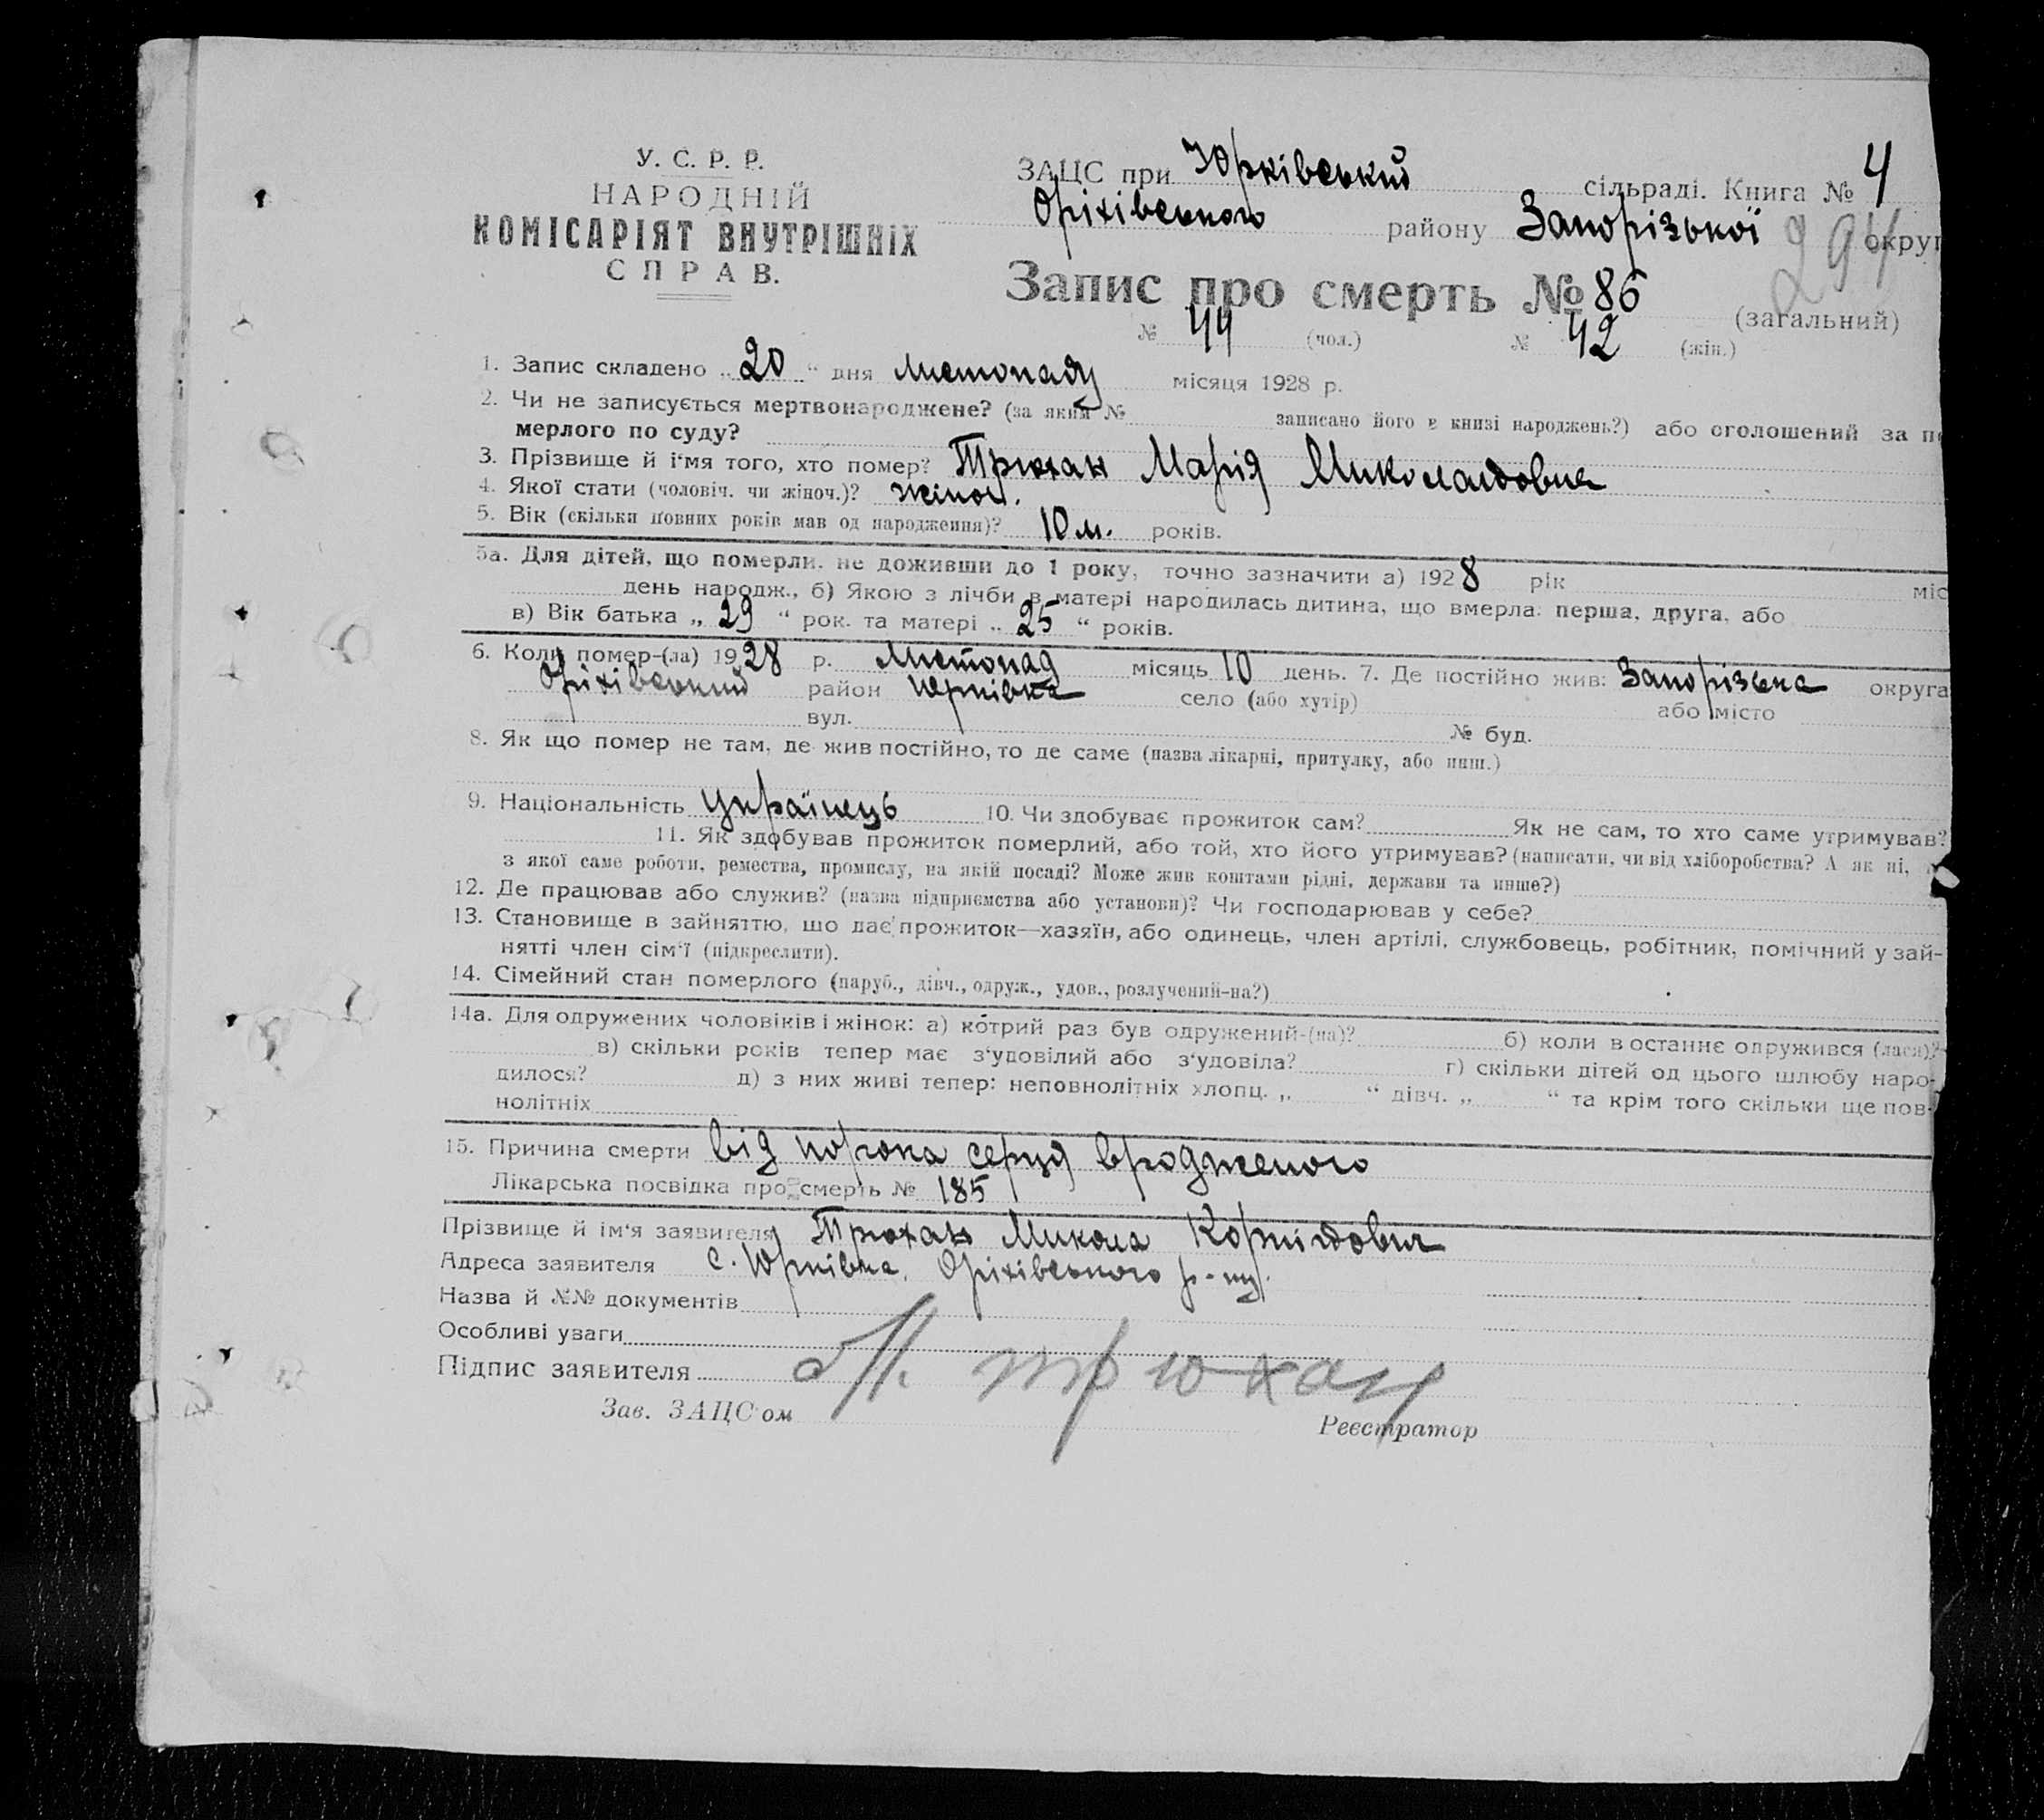 У. С. Р. Р.
НАРОДНІЙ
КОМІСАРІЯТ ВНУТРІШНІХ
СПРАВ.
ЗАЦС при Юрківський сільраді. Книга № 4
Оріхівського району Запорізької округ
294
Запис про смерть № 86 (загальний)
№ 44 (чол.) № 42 (жін.)
1. Запис складено „20“ дня листопаду місяця 1928 р.
2. Чи не записується мертвонароджене? (за яким № записано його в книзі народжень?) або оголошений за п
мерлого по суду?
3. Прізвище й і'мя того, хто помер? Трюхан Марія Миколаєвна
4. Якої стати (чоловіч. чи жіноч.)? жіноч.
5. Вік (скільки повних років мав од народження)? 10 м. років.
5а. Для дітей, що померли, не доживши до 1 року, точно зазначити а) 1928 рік міс
день народж., б) Якою з лічби в матері народилась дитина, що вмерла: перша, друга, або
в) Вік батька „29“ рок. та матері „25“ років.
6. Коли помер-(ла) 1928 р. Листопад місяць 10 день. 7. Де постійно жив: Запорізька округа
Оріхівський район Юрківка село (або хутір) або місто
вул. № буд.
8. Як що помер не там, де жив постійно, то де саме (назва лікарні, притулку, або инш.)
9. Національність Українець 10. Чи здобуває прожиток сам? Як не сам, то хто саме утримував?
11. Як здобував прожиток померлий, або той, хто його утримував? (написати, чи від хліборобства? А як ні,
з якої саме роботи, ремества, промислу, на якій посаді? Може жив коштами рідні, держави та инше?)
12. Де працював або служив? (назва підприємства або установи)? Чи господарював у себе?
13. Становище в зайняттю, що дає прожиток—хазяїн, або одинець, член артілі, службовець, робітник, помічний у зай-
нятті член сім'ї (підкреслити).
14. Сімейний стан померлого (паруб., дівч., одруж., удов., розлучений-на?)
14а. Для одружених чоловіків і жінок: а) котрий раз був одружений-(на)? б) коли в останнє одружився (лася)?
в) скільки років тепер має з'удовілий або з'удовіла? г) скільки дітей од цього шлюбу наро-
дилося? д) з них живі тепер: неповнолітніх хлопц. „ “ дівч. „ “ та крім того скільки ще пов-
нолітніх
15. Причина смерти від порока серця вродженого
Лікарська посвідка про смерть № 185
Прізвище й ім'я заявителя Трюхан Микола Корнійович
Адреса заявителя с. Юрківка, Оріхівського р-ну.
Назва й №№ документів
Особливі уваги
Підпис заявителя М. Трюхан
Зав. ЗАЦС'ом Реєстратор